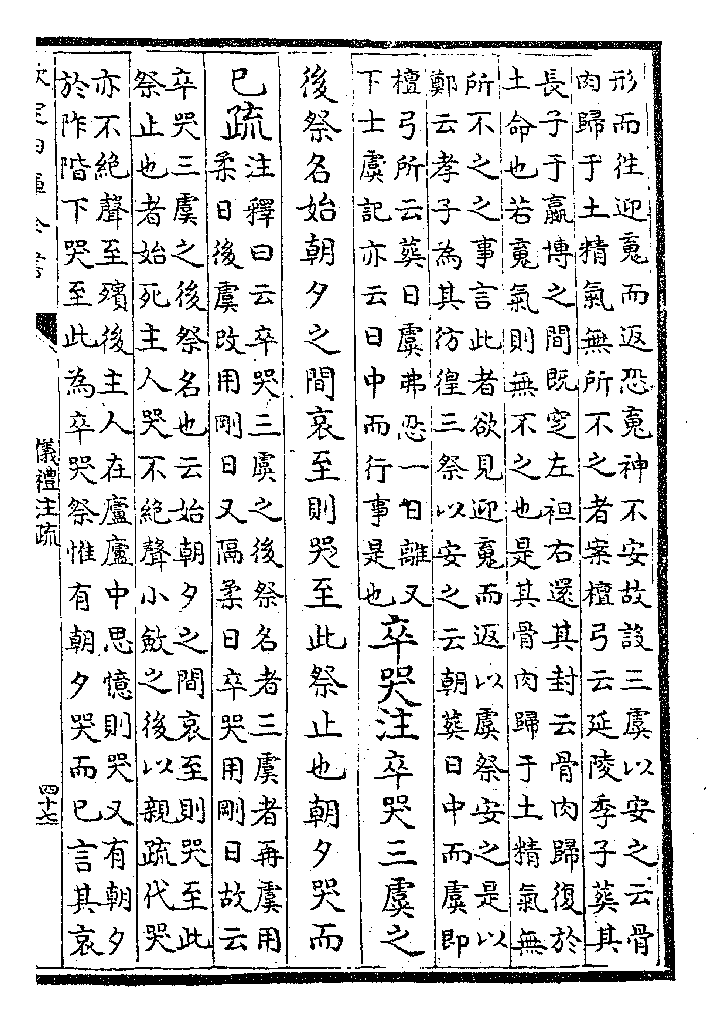 形而往迎䰟而返恐䰟神不安故設三虞以安之云骨
肉歸于土精氣無所不之者案檀弓云延陵季子葬其
長子于嬴博之間既窆左袒右還其封云骨肉歸復於
土命也若䰟氣則無不之也是其骨肉歸于土精氣無
所不之之事言此者欲見迎䰟而返以虞祭安之是以
鄭云孝子為其彷徨三祭以安之云朝葬日中而虞即
檀弓所云葬日虞弗忍一日離又
下士虞記亦云日中而行事是也
卒哭注卒哭三虞之
後祭名始朝夕之間哀至則哭至此祭止也朝夕哭而
已疏
注釋曰云卒哭三虞之後祭名者三虞者再虞用
柔日後虞改用剛日又隔柔日卒哭用剛日故云
卒哭三虞之後祭名也云始朝夕之間哀至則哭至此
祭止也者始死主人哭不絕聲小斂之後以親疏代哭
亦不絕聲至殯後主人在廬廬中思憶則哭又有朝夕
於阼階下哭至此為卒哭祭惟有朝夕哭而已言其哀
儀禮注疏
四十七